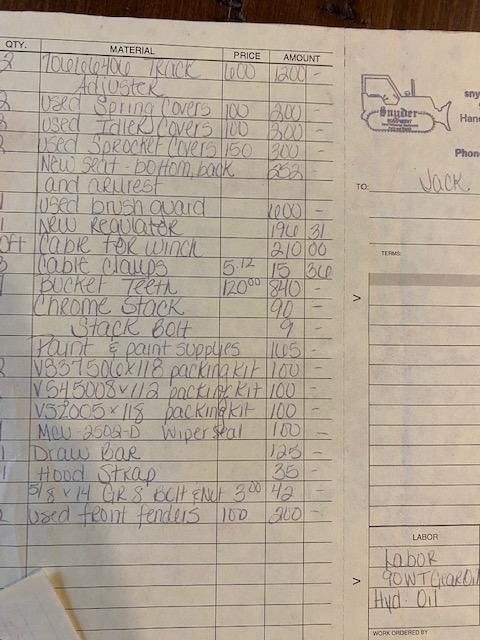 QTY. MATERIAL PRICE AMOUNT
2 706166406 Track 600 1200 -
Adjuster
2 Used Spring Covers 100 200 -
2 Used Idler Covers 100 200 -
2 Used Sprocket Covers 150 300 -
New seat - bottom, back 252 -
and armrest
1 Used brush guard 1000 -
1 New Regulator 196 31
0ft Cable for winch 210 00
3 Cable clamps 5.12 15 36
7 Bucket Teeth 120 00 840 -
Chrome Stack 90 -
Stack Bolt 9 -
Paint & paint supplies 165 -
2 VS337506x118 packing kit 100 -
VS45008x112 packing kit 100 -
VS2005x118 packing kit 100 -
1 MCU-2502-D Wiper seal 100 -
1 Draw Bar 125 -
1 Hood Strap 35 -
5/8 x 14 GR 8 Bolt & Nut 3 00 42 -
2 Used front fenders 100 200 -
Snyder
sny
Han
Phon
TO: Jack
TERMS:
>
LABOR
Labor
90WT Gear Oil
> Hyd. Oil
WORK ORDERED BY